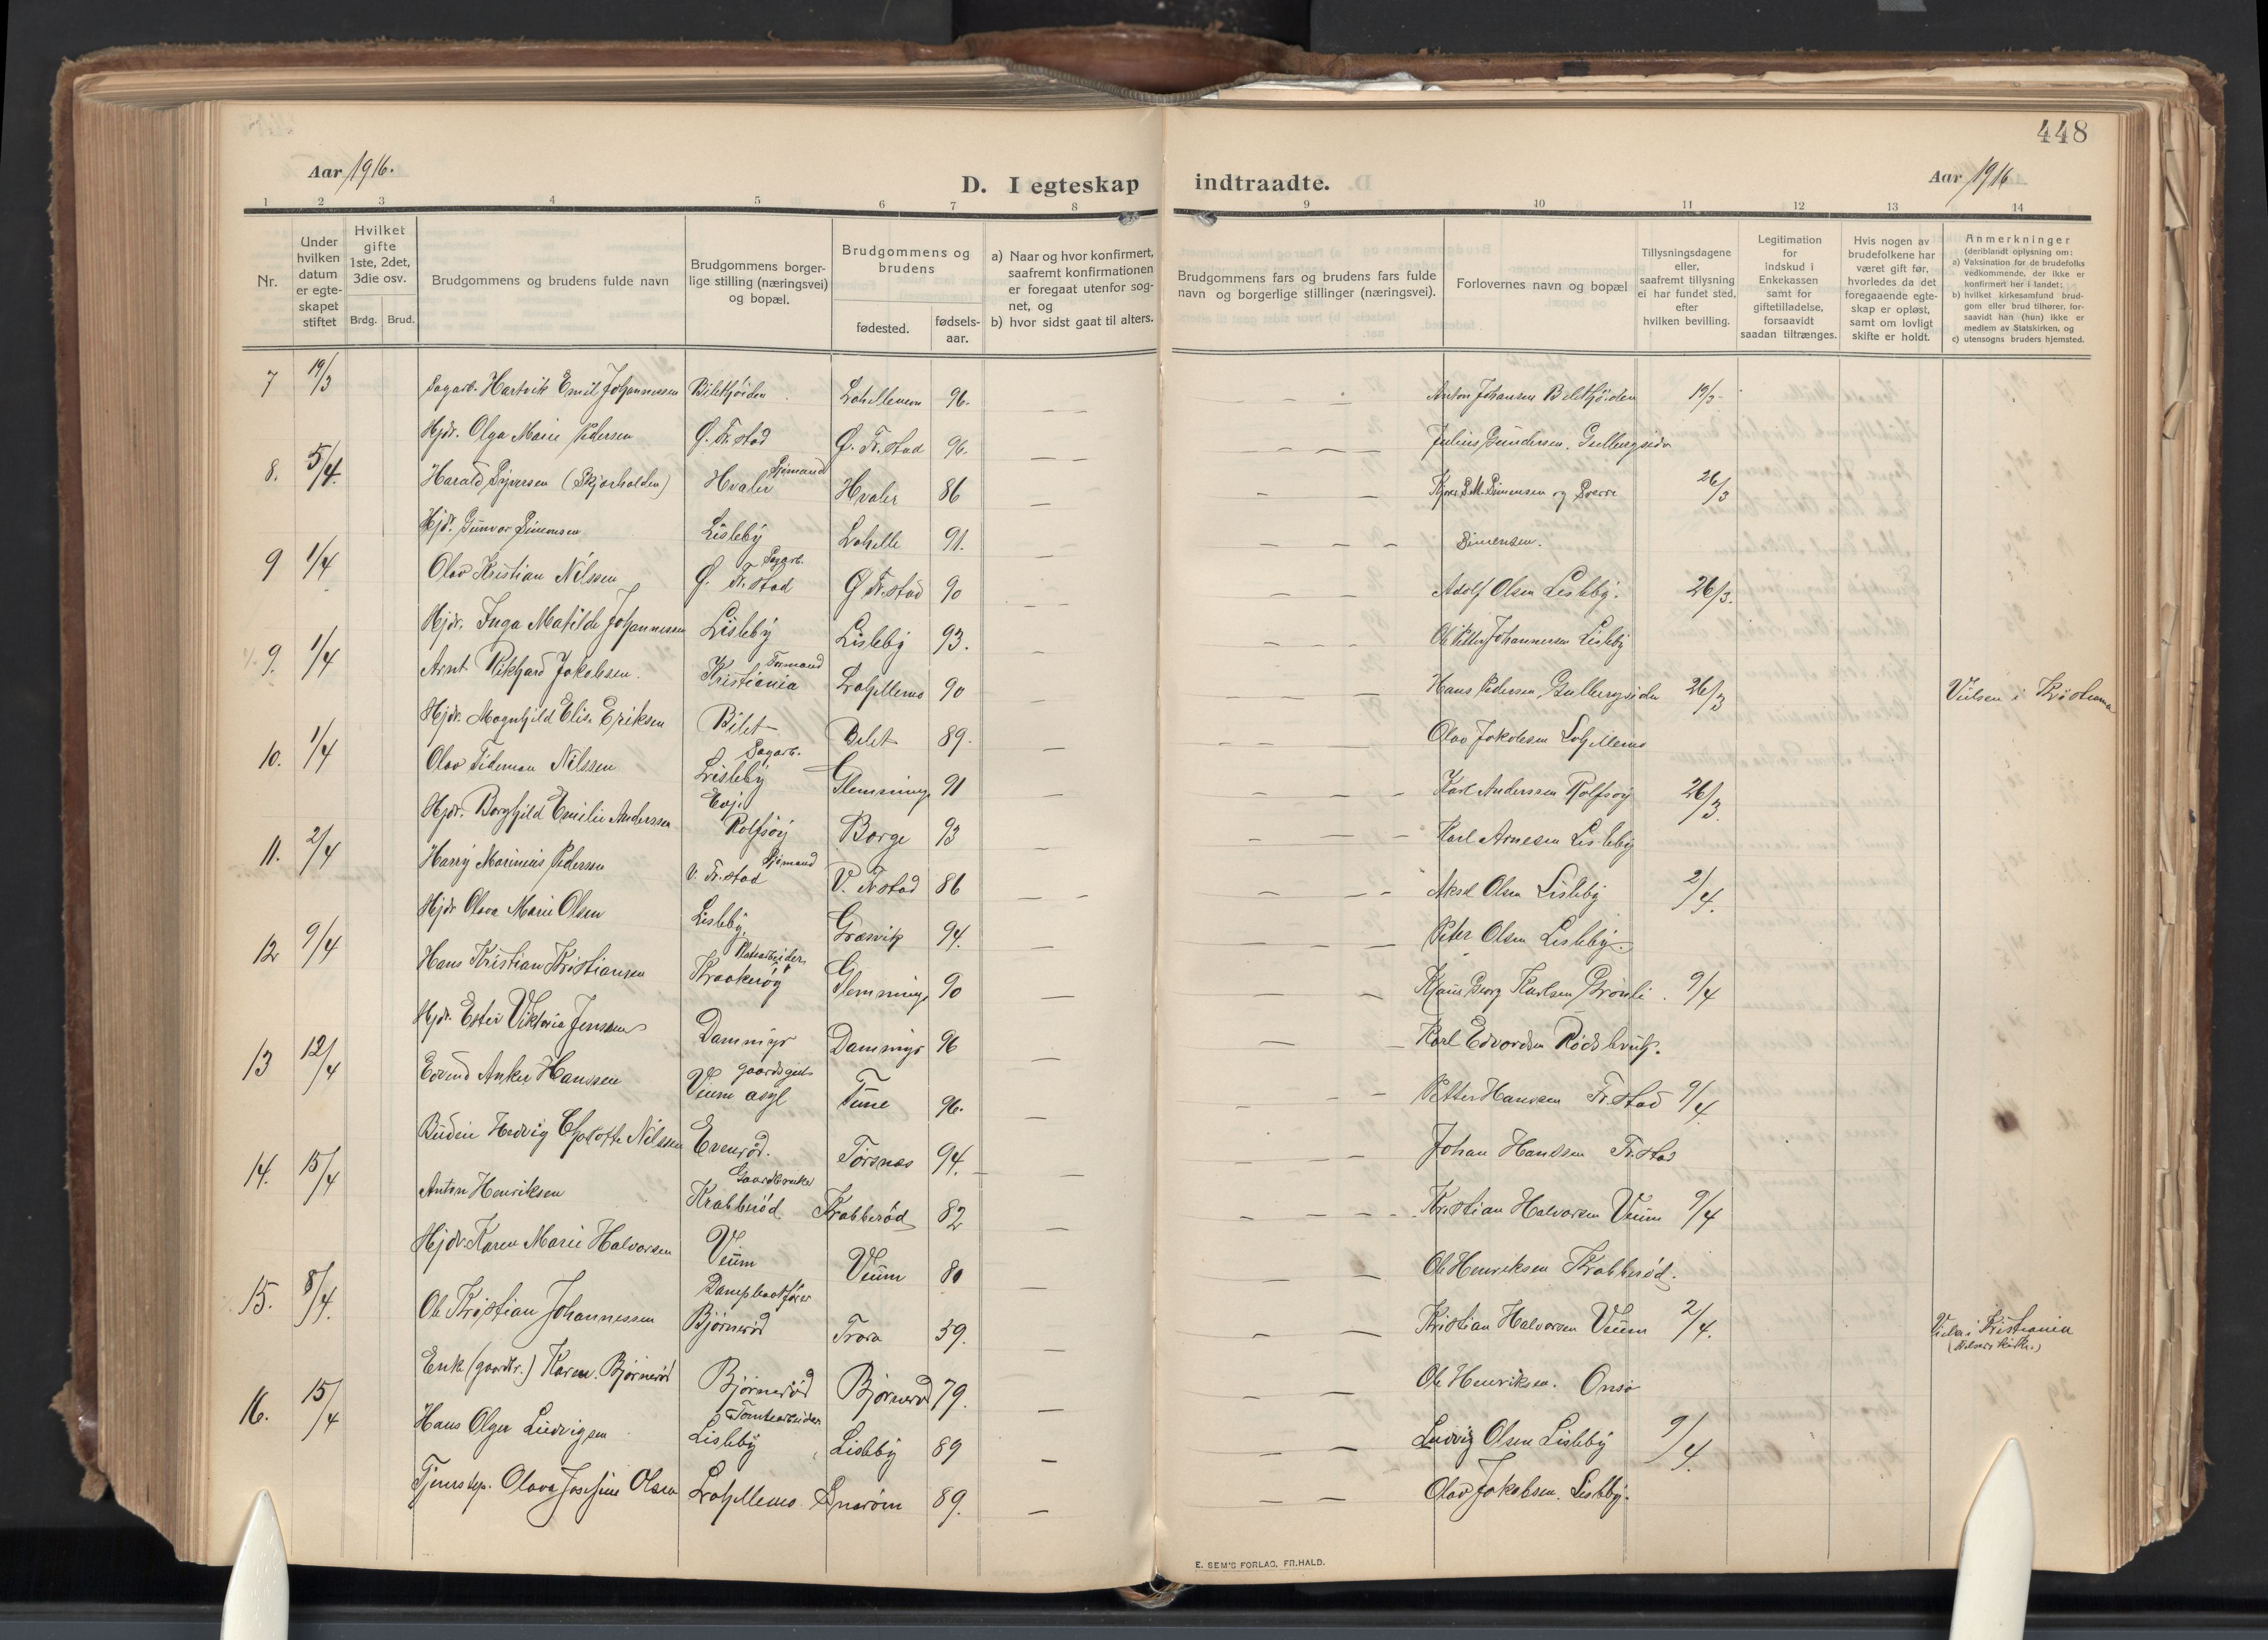 448
Aar 1916.
D. I egteskap indtraadte.
Aar 1916
1 2 3 4 5 6 7 8 9 10 11 12 13 14
Nr.
Under hvilken datum er egteskapet stiftet
Hvilket gifte 1ste, 2det, 3die osv.
Brdg. Brud.
Brudgommens og brudens fulde navn
Brudgommens borgerlige stilling (næringsvei) og bopæl.
Brudgommens og brudens
fødested.
fødselsaar.
a) Naar og hvor konfirmert, saafremt konfirmationen er foregaat utenfor sognet, og
b) hvor sidst gaat til alters.
Brudgommens fars og brudens fars fulde navn og borgerlige stillinger (næringsvei).
Forlovernes navn og bopæl
Tillysningsdagene eller, saafremt tillysning ei har fundet sted, efter hvilken bevilling.
Legitimation for indskud i Enkekassen samt for giftetilladelse, forsaavidt saadan tiltrænges.
Hvis nogen av brudefolkene har været gift før, hvorledes da det foregaaende egteskap er opløst, samt om lovligt skifte er holdt.
Anmerkninger
(deriblandt oplysning om:
a) Vaksination for de brudefolks vedkommende, der ikke er konfirmert her i landet;
b) hvilket kirkesamfund brudgom eller brud tilhører, forsaavidt han (hun) ikke er medlem av Statskirken, og
c) utensogns bruders hjemsted.
7 19/3 Sagarb. Hartvik Emil Johannessen 96. Anton Johansen 19/3
Hjdr. Olga Marie Pedersen Ø. Fr.stad Ø. Fr.stad 96. Julius Gundersen. Gulbergsiden
8. 5/4 Harald Syversen (Skjærhalden) Sjömand Hvaler Hvaler 86 S.M. Simensen og Sverre 26/3
Hjdr. Gunvor Simensen Lisleby 91. Simensen.
9 1/4 Olav Kristian Nilssen Sagarb. Ø. Fr.stad Ø Fr.stad 90 Adolf Olsen Lisleby. 26/3.
Hjdr. Inga Matilde Johannessen Lisleby Lisleby 93. Ole Petter Johannesen Lisleby
9. 1/4 Arnt Rikhard Jakobsen. Kristiania 90 Hans Pedersen, Gulbergsiden 26/3
Hjdr. Magnhild Elise Eriksen Bilet Bilet 89. Olav Jakobsen
10. 1/4 Olav Tideman Nilssen Sagarb. Lisleby Glemminge 91 Karl Anderssen Rolfsøy 26/3.
Hjdr. Borghild Emilie Anderssen Evje Rolfsöy Borge 93 Karl Arnesen Lisleby
11. 2/4 Harry Marinius Pedersen Sjömand V. Fr.stad V. Fr.stad 86 Aksel Olsen Lisleby 2/4.
Hjdr Olava Marie Olsen Lisleby. Græsvik 94. Peter Olsen Lisleby.
12 9/4 Hans Kristian Kristiansen Kraakeröy Glemminge 90 Georg Karlsen 9/4
Hjdr. Ester Viktoria Jenssen Dammyr Dammyr 96 Karl Edvardsen
13 12/4 Eivind Anker Hanssen Veum asyl Tune 96. Petter Hanssen Fr.stad 9/4.
Hedvig Nilssen Evenröd. Torsnæs 94. Johan Hanssen Fr.stad
14. 15/4 Anton Henriksen Gaardbruker Krabberöd Krabberöd 82 Kristian Halvorsen Veum 9/4
Hjdr. Karen Marie Halvorsen Veum Veum 80 Ole Henriksen Krabberöd.
15. 8/4. Ole Kristian Johannessen Dampbaatförer Björneröd 59. Kristian Halvorsen Veum 2/4. Viet i Kristiania
Enk (gaardbr.) Karen Björneröd Björneröd Björneröd 79. Ole Henriksen. Onsø
16. 15/4 Hans Olger Ludvigsen Tomtearbeider Lisleby Lisleby 89 Ludvig Olsen Lisleby 9/4.
Olava Josefine Olsen 89. Olav Jakobsen. Lisleby.
E. SEM'S FORLAG, FR.HALD.